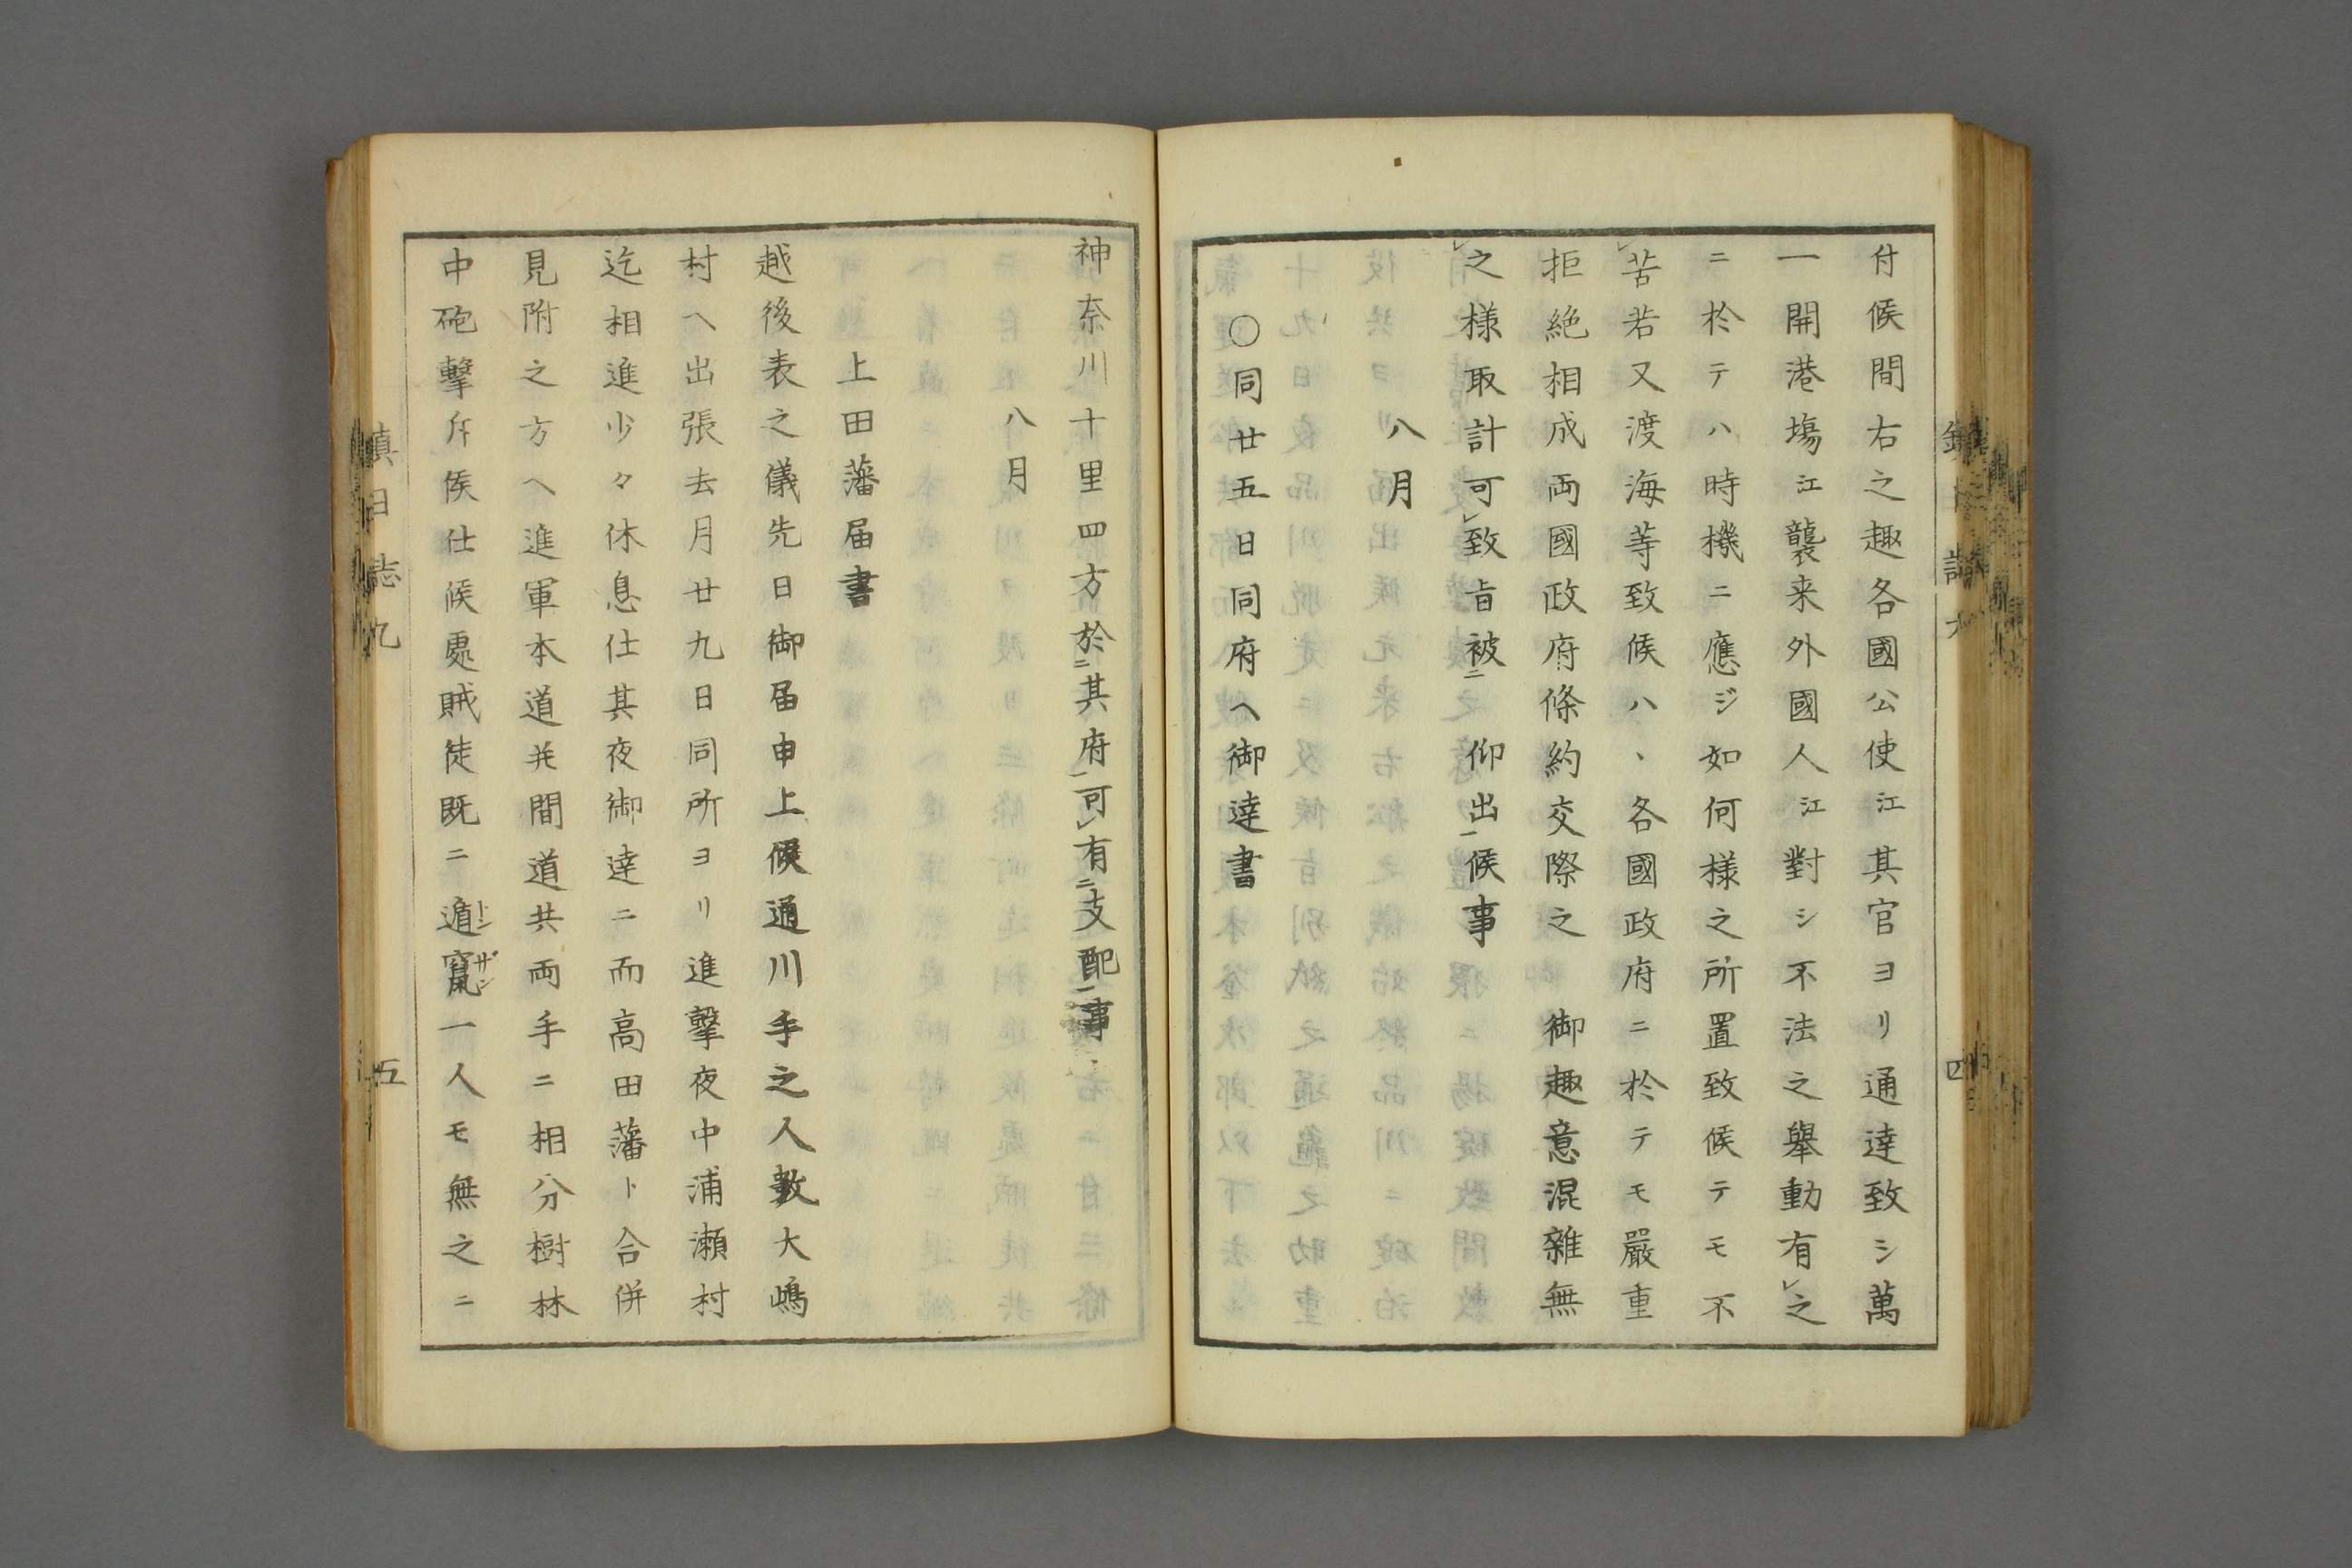 付候間右之趣各國公使江其官ヨリ通達致シ萬
一開港場江襲来外國人江對シ不法之舉動有レ之
ニ於テハ時機ニ應ジ如何様之所置致候テモ不
レ苦若又渡海等致候ハヽ各國政府ニ於テモ嚴重
拒絶相成両國政府條約交際之 御趣意混雑無
レ之様取計可レ致旨被ニ 仰出一候事
八月
〇同廿五日同府ヘ御達書
神奈川十里四方於ニ其府一可レ有ニ支配一事
八月
上田藩届書
越後表之儀先日御届申上候通川手之人數大嶋
村ヘ出張去月廿九日同所ヨリ進撃夜中浦瀬村
迄相進少々休息仕其夜御達ニ而高田藩ト合併
見附之方ヘ進軍本道并間道共両手ニ相分樹林
中砲撃斥候仕候處賊徒既ニ遁竄トンザン一人モ無之ニ
鎮日志九
五
四